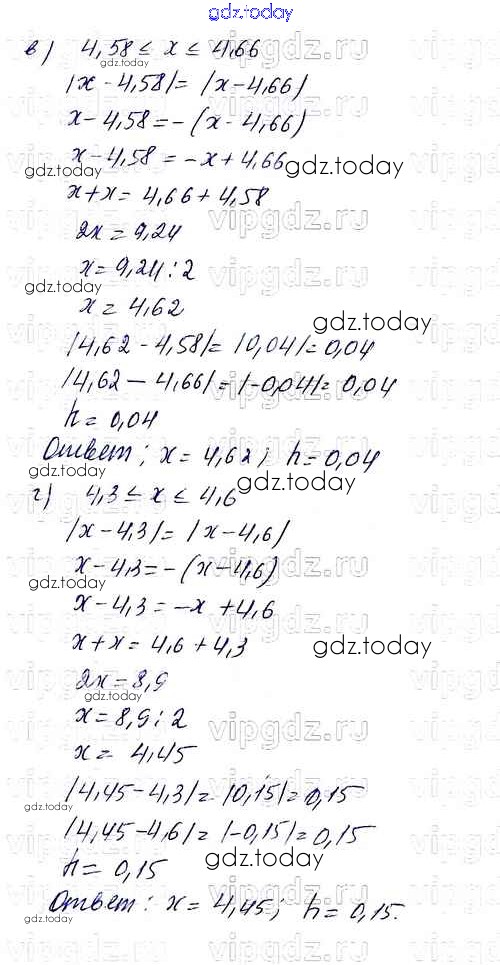 gdz.today
в) 4,58 ≤ x ≤ 4,66
gdz.today
|x - 4,58| = |x - 4,66|
x - 4,58 = -(x - 4,66)
x - 4,58 = -x + 4,66
gdz.today gdz.today
x + x = 4,66 + 4,58
vipgdz.ru
2x = 9,24
x = 9,24 : 2
gdz.today
x = 4,62
gdz.today
|4,62 - 4,58| = |0,04| = 0,04
|4,62 - 4,66| = |-0,04| = 0,04
h = 0,04
gdz.today
Ответ: x = 4,62; h = 0,04
г) 4,3 ≤ x ≤ 4,6
gdz.today
|x - 4,3| = |x - 4,6|
x - 4,3 = -(x - 4,6)
gdz.today
x - 4,3 = -x + 4,6
x + x = 4,6 + 4,3
gdz.today
2x = 8,9
gdz.today
x = 8,9 : 2
vipgdz.ru
x = 4,45
|4,45 - 4,3| = |0,15| = 0,15
gdz.today
|4,45 - 4,6| = |-0,15| = 0,15
h = 0,15
gdz.today
Ответ: x = 4,45; h = 0,15.
gdz.today